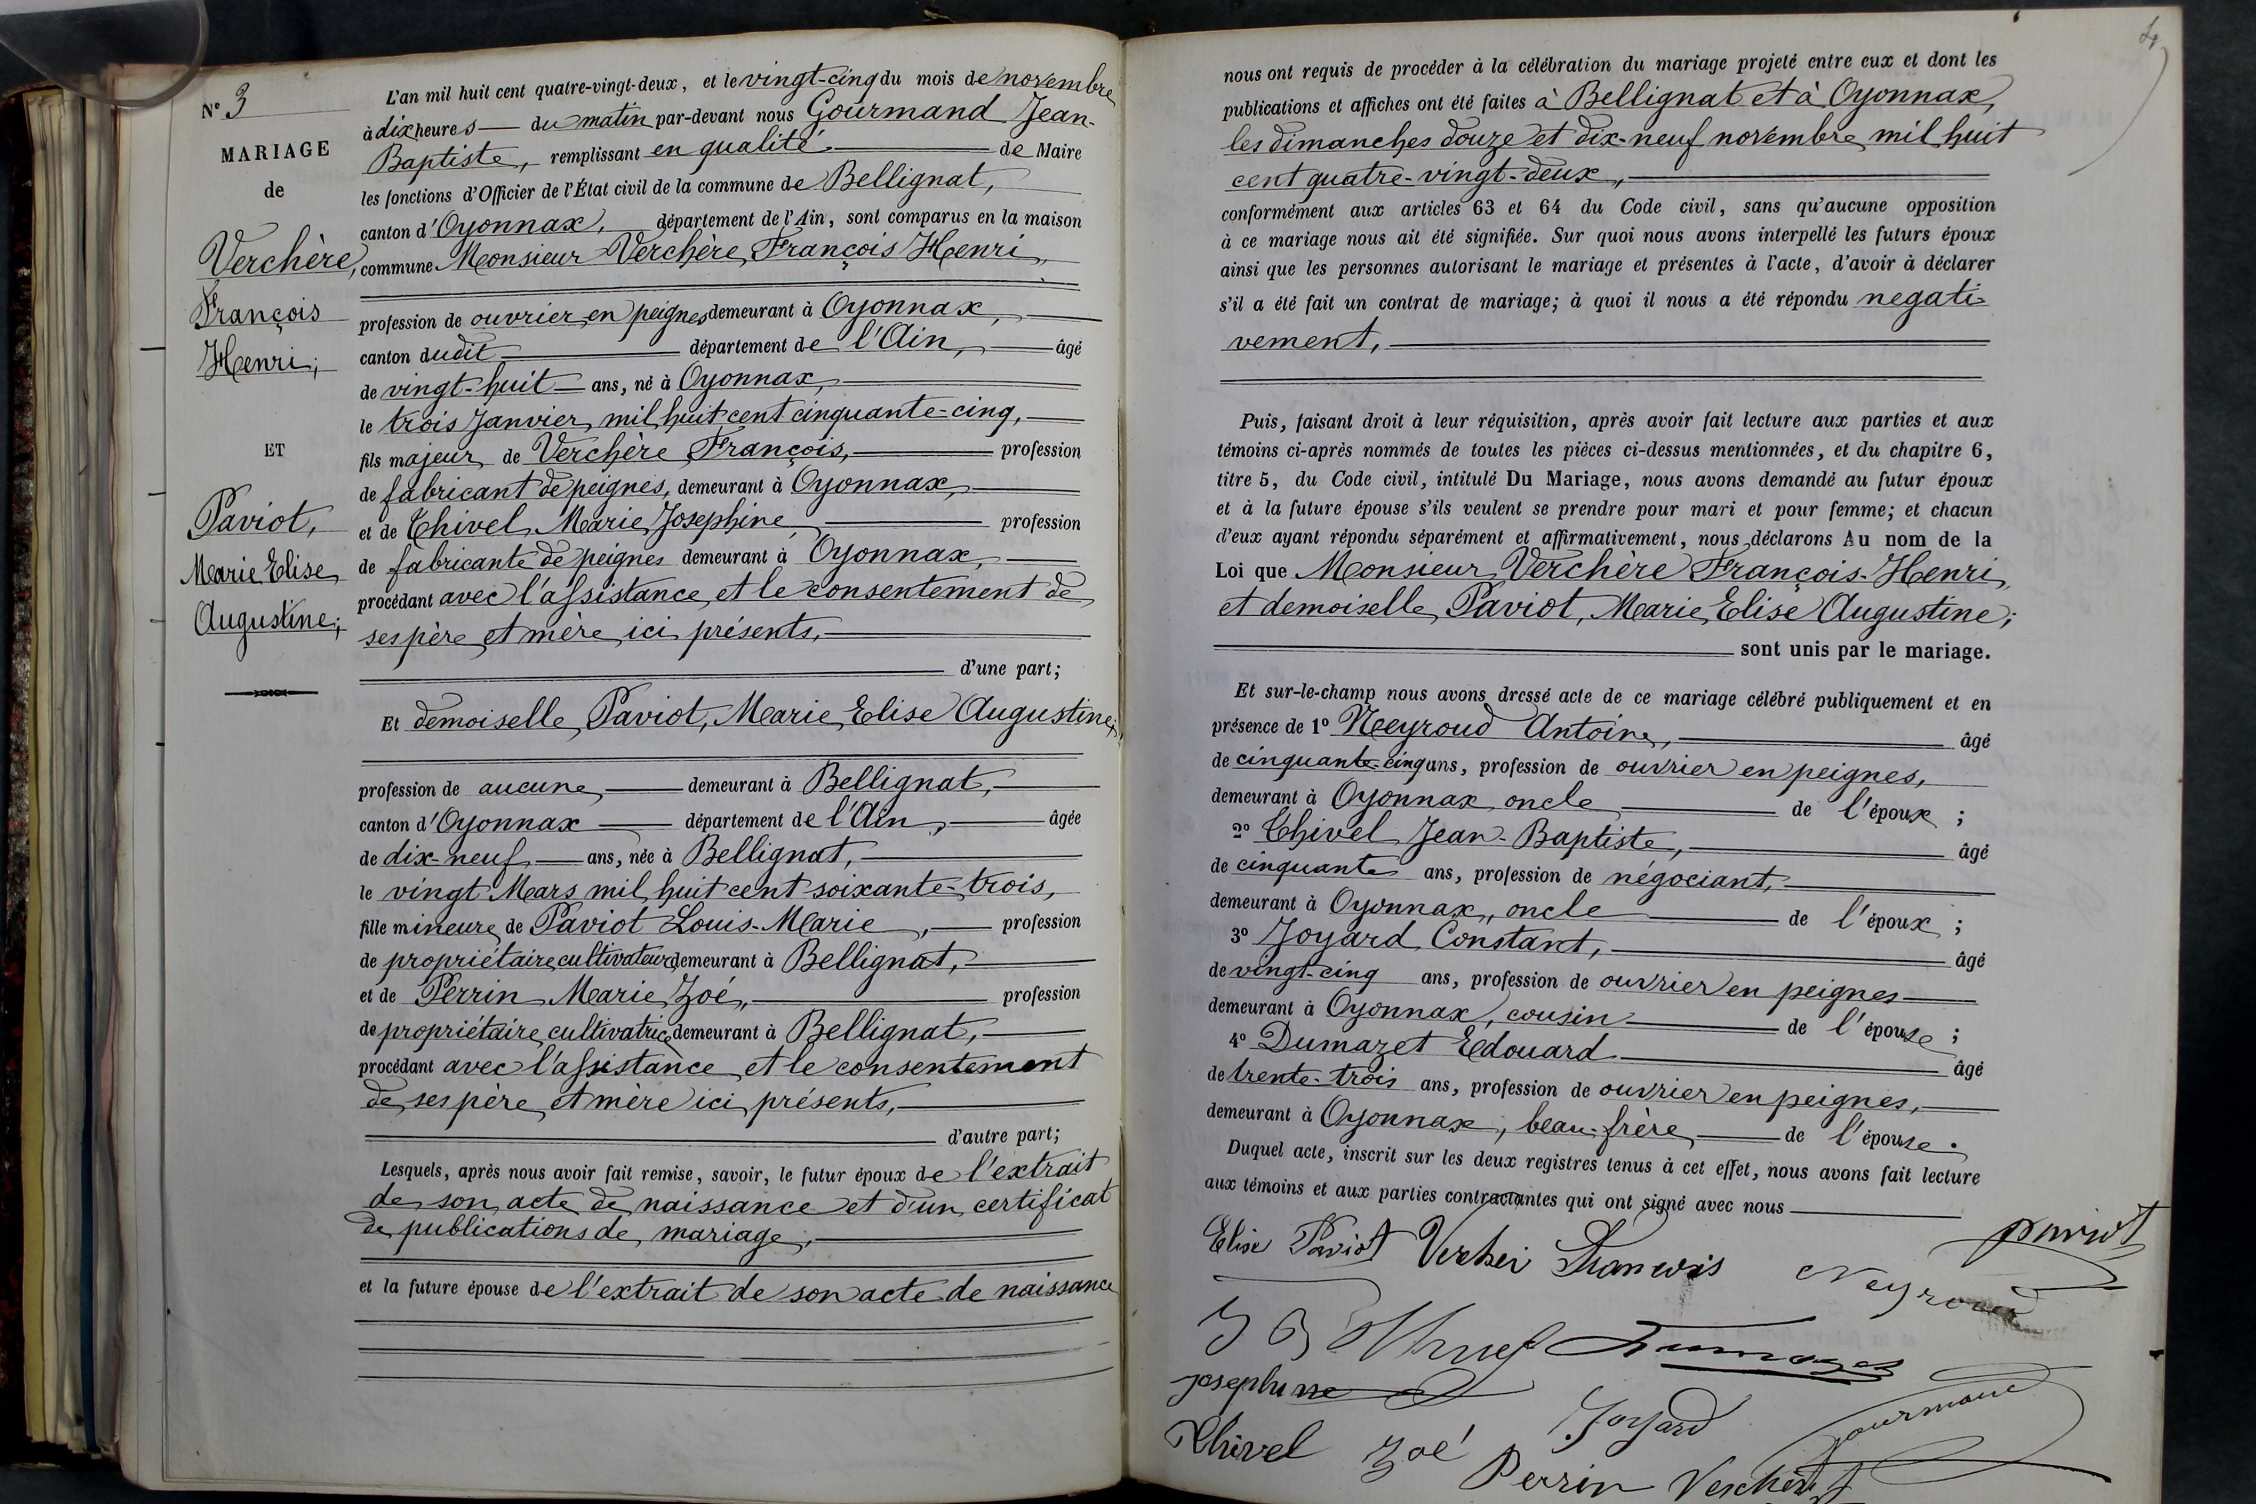 N° 3
MARIAGE
de
Verchère,
François
Henri;
ET
Paviot,
Marie Elise
Augustine;
L'an mil huit cent quatre-vingt-deux, et le vingt-cinq du mois de novembre
à dix heures du matin par-devant nous Gourmand Jean-
Baptiste, remplissant en qualité de Maire
les fonctions d'Officier de l'État civil de la commune de Bellignat,
canton d'Oyonnax, département de l'Ain, sont comparus en la maison
commune Monsieur Verchère, François Henri,
profession de ouvrier en peignes demeurant à Oyonnax,
canton dudit département de l'Ain, âgé
de vingt-huit ans, né à Oyonnax,
le trois Janvier mil huit cent cinquante-cinq,
fils majeur de Verchère François, profession
de fabricant de peignes, demeurant à Oyonnax,
et de Thivel Marie Josephine, profession
de fabricante de peignes demeurant à Oyonnax,
procédant avec l'assistance et le consentement de
ses père et mère ici présents,
d'une part;
Et demoiselle Paviot, Marie Elise Augustine;
profession de aucune, demeurant à Bellignat,
canton d'Oyonnax département de l'Ain, âgée
de dix-neuf ans, née à Bellignat,
le vingt Mars mil huit cent soixante-trois,
fille mineure de Paviot Louis-Marie, profession
de propriétaire cultivateur demeurant à Bellignat,
et de Perrin Marie Zoé, profession
de propriétaire cultivatrice demeurant à Bellignat,
procédant avec l'assistance et le consentement
de ses père et mère ici présents,
d'autre part;
Lesquels, après nous avoir fait remise, savoir, le futur époux de l'extrait
de son acte de naissance et d'un certificat
de publications de mariage;
et la future épouse de l'extrait de son acte de naissance
4
nous ont requis de procéder à la célébration du mariage projeté entre eux et dont les
publications et affiches ont été faites à Bellignat et à Oyonnax,
les dimanches douze et dix-neuf novembre mil huit
cent quatre-vingt-deux,
conformément aux articles 63 et 64 du Code civil, sans qu'aucune opposition
à ce mariage nous ait été signifiée. Sur quoi nous avons interpellé les futurs époux
ainsi que les personnes autorisant le mariage et présentes à l'acte, d'avoir à déclarer
s'il a été fait un contrat de mariage; à quoi il nous a été répondu negati-
vement,
Puis, faisant droit à leur réquisition, après avoir fait lecture aux parties et aux
témoins ci-après nommés de toutes les pièces ci-dessus mentionnées, et du chapitre 6,
titre 5, du Code civil, intitulé Du Mariage, nous avons demandé au futur époux
et à la future épouse s'ils veulent se prendre pour mari et pour femme; et chacun
d'eux ayant répondu séparément et affirmativement, nous déclarons Au nom de la
Loi que Monsieur Verchère François-Henri,
et demoiselle Paviot, Marie Elise Augustine;
sont unis par le mariage.
Et sur-le-champ nous avons dressé acte de ce mariage célébré publiquement et en
présence de 1° Neyroud Antoine, âgé
de cinquante-cinq ans, profession de ouvrier en peignes,
demeurant à Oyonnax oncle de l'époux;
2° Thivel Jean-Baptiste, âgé
de cinquante ans, profession de négociant,
demeurant à Oyonnax, oncle de l'époux;
3° Joyard Constant, âgé
de vingt-cinq ans, profession de ouvrier en peignes
demeurant à Oyonnax, cousin de l'épouse;
4° Dumazet Edouard âgé
de trente-trois ans, profession de ouvrier en peignes,
demeurant à Oyonnax, beau-frère de l'épouse.
Duquel acte, inscrit sur les deux registres tenus à cet effet, nous avons fait lecture
aux témoins et aux parties contractantes qui ont signé avec nous
Elise Paviot Francois Paviot
Neyroud
Dumazet
Josephine
Thivel Zoé Joyard Gourmand
Perrin